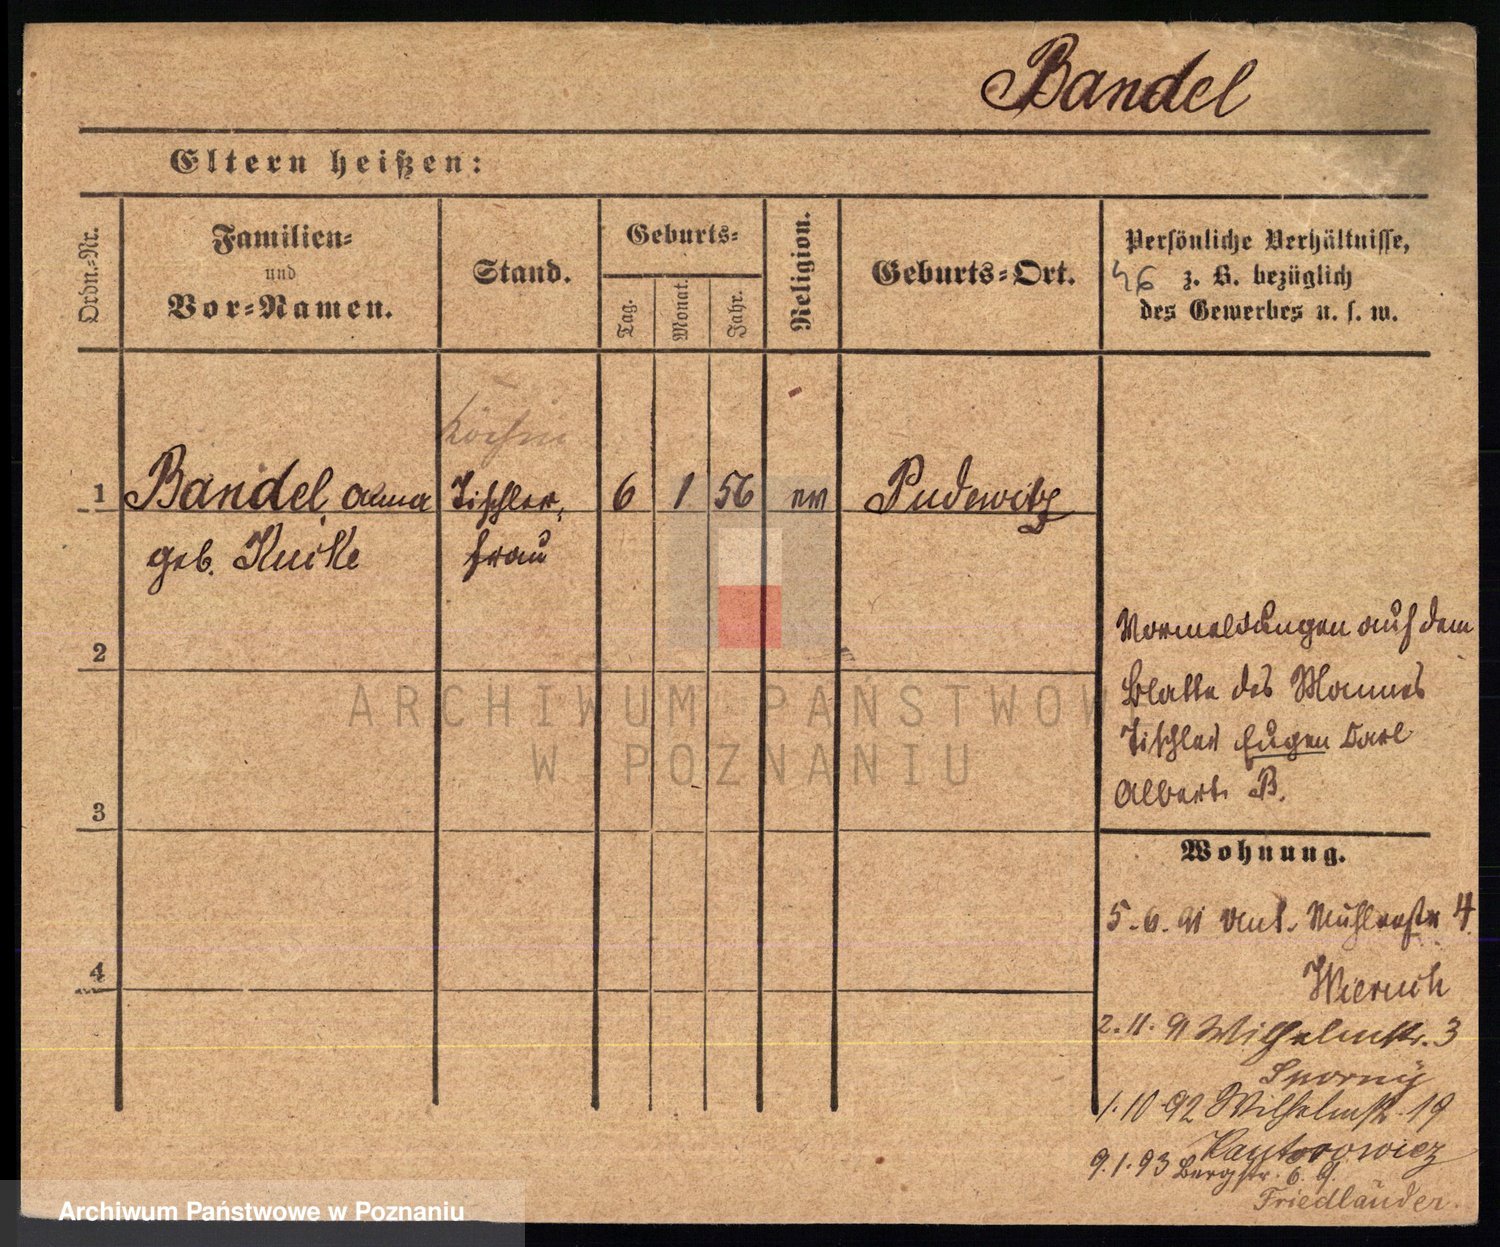 Bandel
Eltern heißen:
Ordn.-Nr.
Familien-
und
Vor-Namen.
Stand.
Geburts-
Tag.
Monat.
Jahr.
Religion.
Geburts-Ort.
Persönliche Verhältnisse,
z. B. bezüglich
des Gewerbes u. s. w.
Köchin
1 Bandel, Alma Tischler- 6 1 56 ev Pudewitz
geb. frau
2
3
4
Vormeldungen auf dem
Blatte des Mannes
Tischler Eugen Carl
Albert B.
Wohnung.
5.6.91 Mühlenstr 4
2.11.91 Wilhelmstr. 3
Sporny
1.10.92 Wilhelmstr. 19
Kantorowicz
9.1.93 Bergstr. 6.
Friedländer.
ARCHIWUM PAŃSTWOWE
W POZNANIU
Archiwum Państwowe w Poznaniu